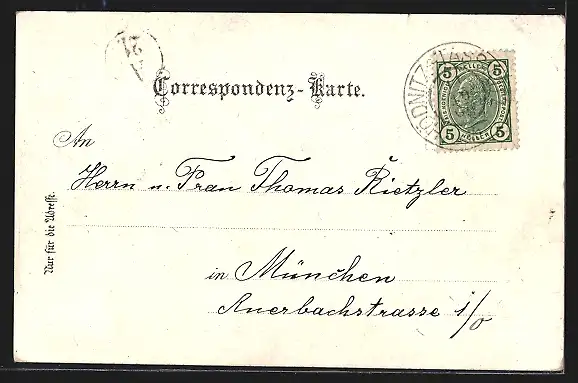 Correspondenz-Karte.
An
Herrn u. Frau Thomas Rietzler
in München
Auerbachstrasse 1/0
Nur für die Adresse.
5 HELLER 5
5 HELLER 5
21